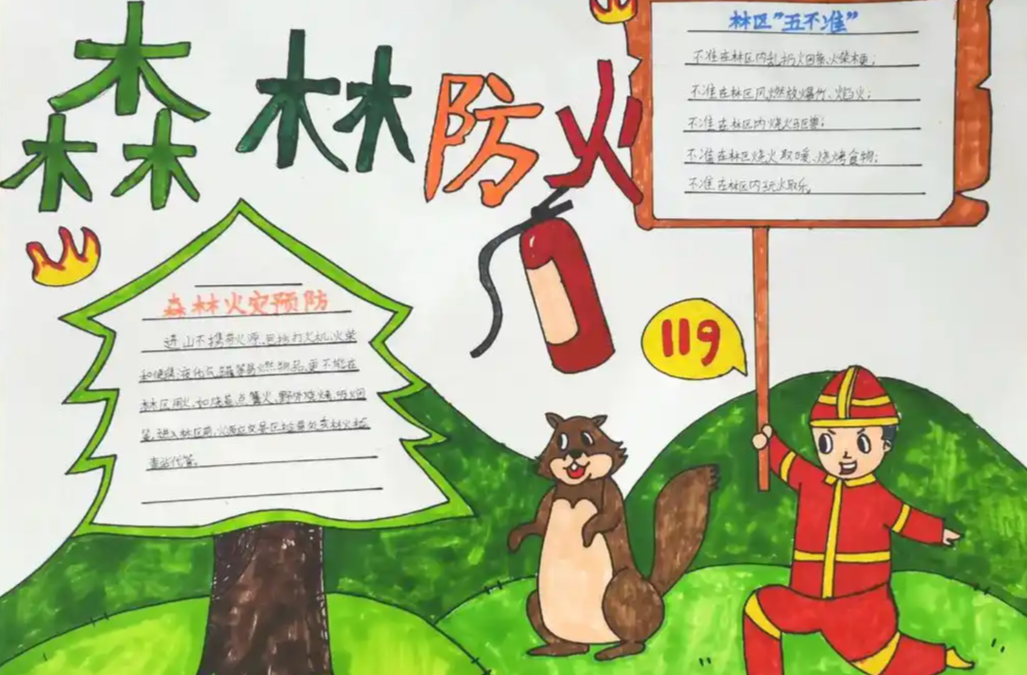 森林防火
林区"五不准"
不准在林区内乱扔烟蒂、火柴梗;
不准在林区风燃放爆竹、焰火;
不准在林区内烧火驱兽;
不准在林区烧火取暖、烧烤食物;
不准在林区内玩火取乐。
119
森林火灾预防
进山不携带火源,包括打火机、火柴
和使用液化气罐等易燃物品,更不能在
林区用火,如烧荒、点篝火、野外烧烤、吸烟
等,进入林区前,火源应交景区检查处森林火检
查站代管。